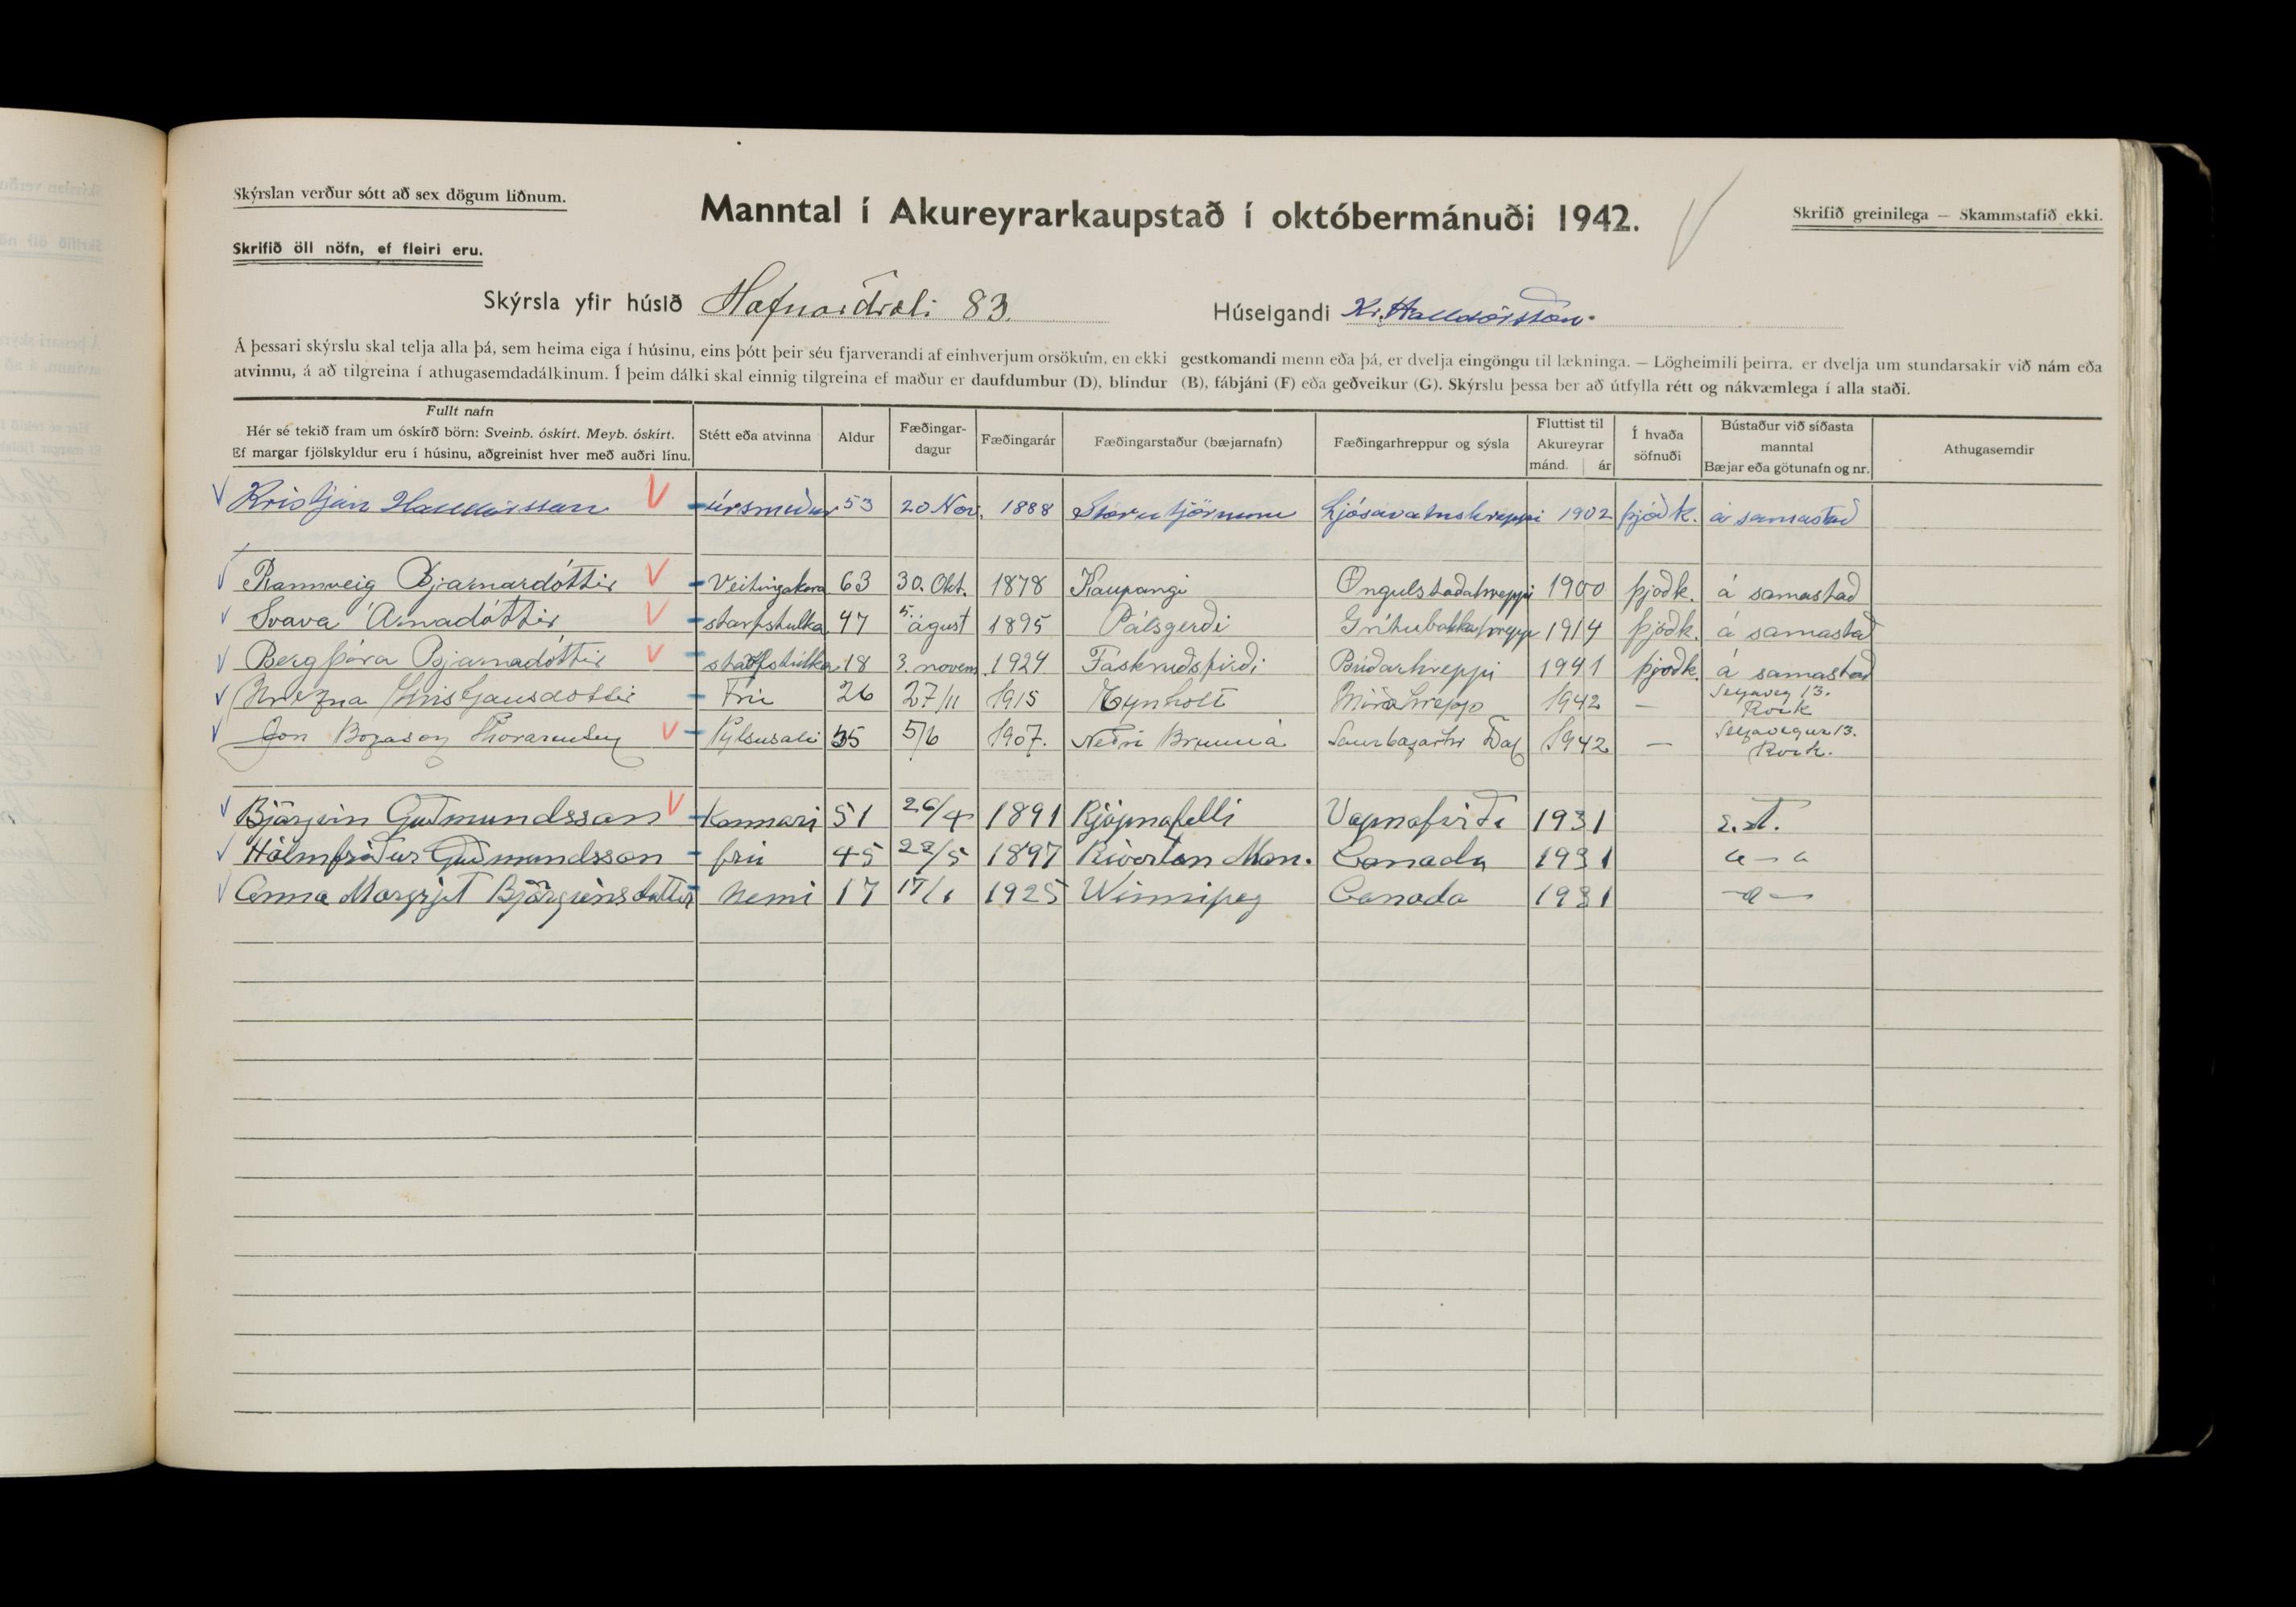 Skýrslan verður sótt að sex dögum liðnum.
Manntal í Akureyrarkaupstað í októbermánuði 1942.
Skrifið greinilega — Skammstafið ekki.
Skrifið öll nöfn, ef fleiri eru.
Skýrsla yfir húsið Hafnarstræti 83. Húseigandi Kr. Halldórsson.
Á þessari skýrslu skal telja alla þá, sem heima eiga í húsinu, eins þótt þeir séu fjarverandi af einhverjum orsökum, en ekki gestkomandi menn eða þá, er dvelja eingöngu til lækninga. — Lögheimili þeirra. er dvelja um stundarsakir við nám eða
atvinnu, á að tilgreina í athugasemdadálkinum. Í þeim dálki skal einnig tilgreina ef maður er daufdumbur (D), blindur (B), fábjáni (F) eða geðveikur (G). Skýrslu þessa ber að útfylla rétt og nákvæmlega í alla staði.
Fullt nafn
Hér sé tekið fram um óskírð börn: Sveinb. óskírt. Meyb. óskírt.
Ef margar fjölskyldur eru í húsinu, aðgreinist hver með auðri línu.
Stétt eða atvinna
Aldur
Fæðingar-
dagur
Fæðingarár
Fæðingarstaður (bæjarnafn)
Fæðingarhreppur og sýsla
Fluttist til
Akureyrar
mánd. ár
Í hvaða
söfnuði
Bústaður við síðasta
manntal
Bæjar eða götunafn og nr.
Athugasemdir
Kristján Halldórsson úrsmiður 53 20 Nóv. 1888 Stórutjörnum Ljósavatnshreppi 1902 þjóðk. á samastað
Rannveig Bjarnardóttir Veitingakona 63 30. Okt. 1878 Kaupangi Öngulstaðahreppi 1900 þjoðk. á samastað
Svava Árnadóttir starfstulka 47 5. ágúst 1895 Pálsgerði Grítubakkahreppi 1914 þjóðk. á samastað
Bergþóra Bjarnadóttir starfstúlka 18 3. novem. 1924 Fáskruðsfirði Búðarhreppi 1941 þjoðk. á samastað
Kristjansdóttir Frú 26 27/11 1915 Mýrahreppo 1942 — Seljaveg 13.
Rvík
Jón Bogason Thorarensen Pylsusali 35 5/6 1907. Neðri Brunná Saurbæjarhr Dal 1942 — Seljavegur 13.
Rvík.
Björgvin Guðmundsson Kennari 51 26/4 1891 Rjúpnafelli Vopnafirði 1931 s.st.
Hólmfríður Guðmundsson frú 45 /5 1897 Riverton Man. Canada 1931
Anna Margrjet Björgvinsdottir Nemi 17 17/1 1925 Winnipeg Canada 1931